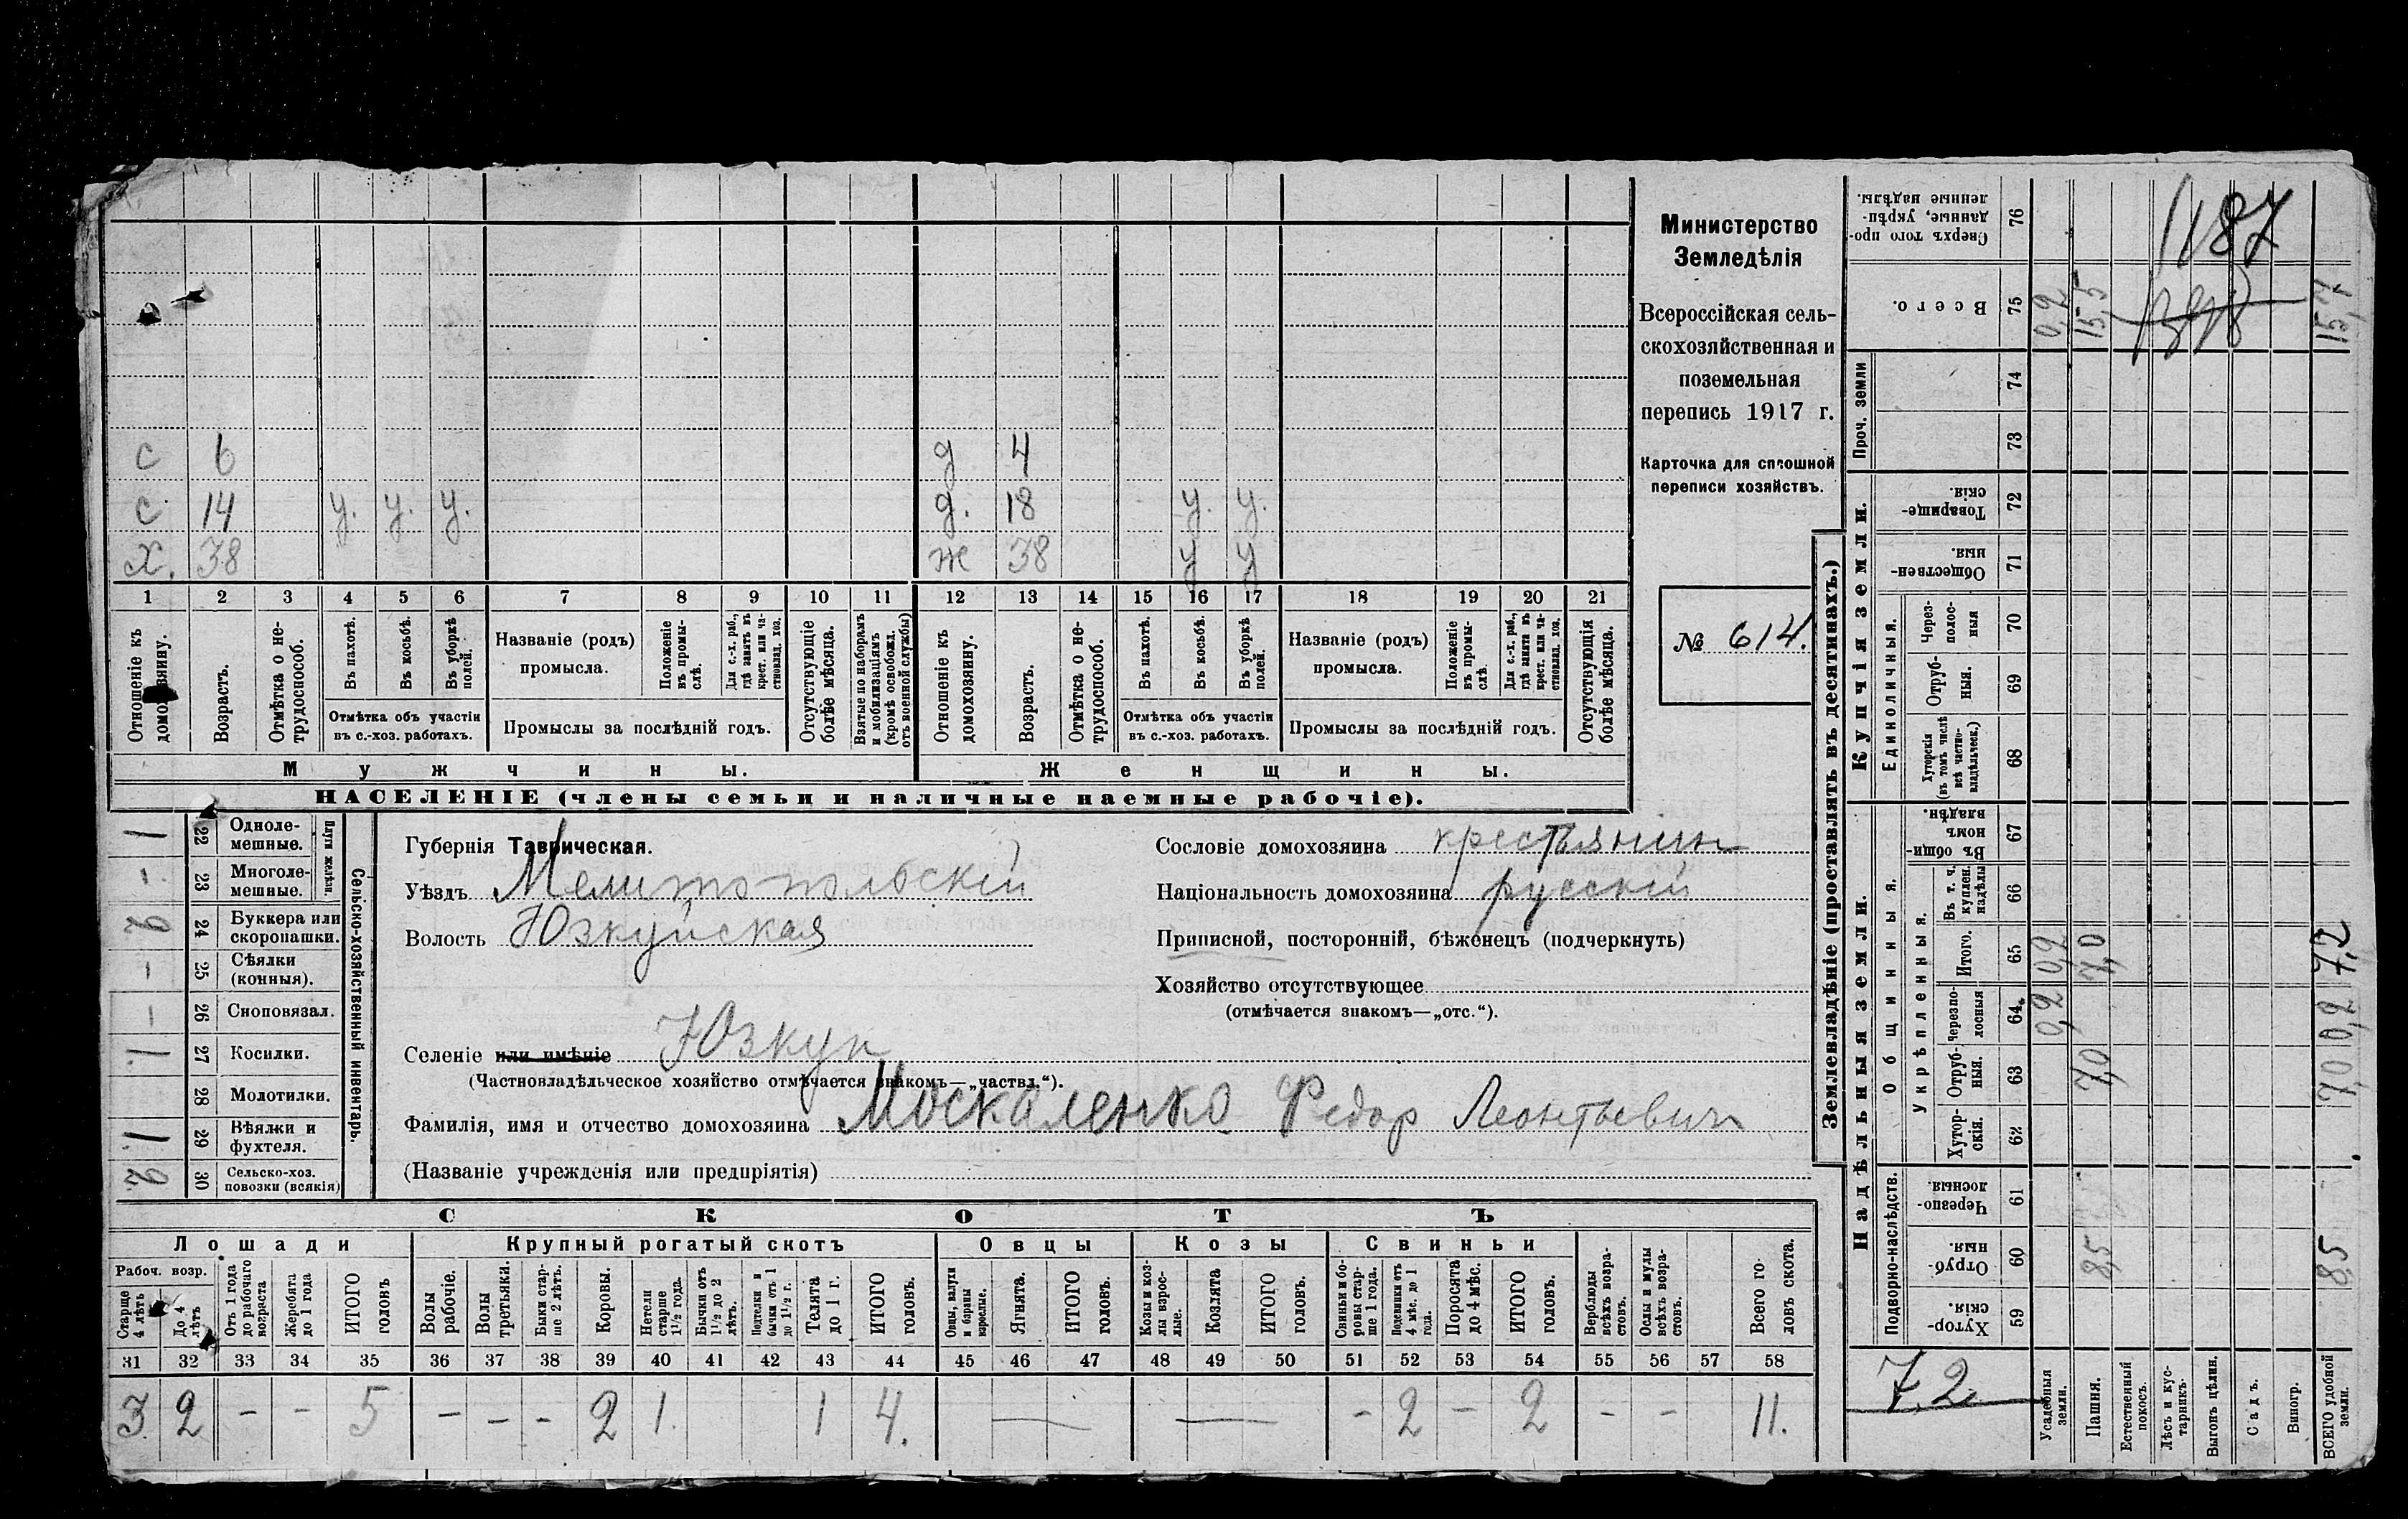 с 6 д 4
с 14 у. у. у. д. 18 у. у.
х. 38 ж 38 у у
1 2 3 4 5 6 7 8 9 10 11 12 13 14 15 16 17 18 19 20 21
Отношеніе къ домохозяину.
Возрастъ.
Отмѣтка о не-
трудоспособ.
Въ пахотѣ.
Въ косьбѣ.
Въ уборкѣ
полей.
Отмѣтка объ участіи
въ с.-хоз. работахъ.
Названіе (родъ)
промысла.
Положеніе
въ промы-
слѣ.
Для с.-х. раб.,
гдѣ занятъ въ
крест. или ча-
стновлад. хоз.
Промыслы за послѣдній годъ.
Отсутствующіе
болѣе мѣсяца.
Взятые по наборамъ
и мобилизаціямъ
(кромѣ освобожд.
отъ военной службы)
Отношеніе къ
домохозяину.
Возрастъ.
Отмѣтка о не-
трудоспособ.
Въ пахотѣ.
Въ косьбѣ.
Въ уборкѣ
полей.
Отмѣтка объ участіи
въ с.-хоз. работахъ.
Названіе (родъ)
промысла.
Положеніе
въ промы-
слѣ.
Для с.-х. раб.,
гдѣ занята въ
крест. или ча-
стновлад. хоз.
Промыслы за послѣдній годъ.
Отсутствующія
болѣе мѣсяца.
Мужчины. Женщины.
НАСЕЛЕНІЕ (члены семьи и наличные наемные рабочіе).
Министерство
Земледѣлія
Всероссійская сель-
скохозяйственная и
поземельная
перепись 1917 г.
Карточка для сплошной
переписи хозяйствъ.
№ 614.
1 22 Одноле-
мешные.
- 23 Многоле-
мешные.
Плуги желѣзн.
24 Буккера или
скоропашки.
- 25 Сѣялки
(конныя).
- 26 Сноповязал.
1 27 Косилки.
28 Молотилки.
1. 29 Вѣялки и
фухтеля.
30 Сельско-хоз.
повозки (всякія)
Сельско-хозяйственный инвентарь.
Губернія Таврическая.
Уѣздъ Мелитопольскій
Волость Юзкуйская
Селеніе или имѣніе Юзкуи
(Частновладѣльческое хозяйство отмѣчается знакомъ—„частвл.“).
Фамилія, имя и отчество домохозяина Москаленко Федор Леонтьевич
(Названіе учрежденія или предпріятія)
Сословіе домохозяина крестьянин
Національность домохозяина русскій
Приписной, посторонній, бѣженецъ (подчеркнуть)
Хозяйство отсутствующее
(отмѣчается знакомъ—„отс.“).
СКОТЪ
Лошади Крупный рогатый скотъ Овцы Козы Свиньи
Рабоч. возр.
Старше
4 лѣтъ
До 4
лѣтъ
Отъ 1 года
до рабочаго
возраста
Жеребята
до 1 года
ИТОГО
головъ
Волы
рабочіе.
Волы
третьяки.
Быки стар-
ше 2 лѣтъ.
Коровы.
Нетели
старше
1½ года.
Бычки отъ
1½ до 2
лѣтъ.
Подтелки и
бычки отъ 1
до 1½ г.
Телята
до 1 г.
ИТОГО
головъ.
Овцы, валухи
и бараны
взрослые.
Ягнята.
ИТОГО
головъ.
Козы и коз-
лы взрос-
лые.
Козлята
ИТОГО
головъ.
Свиньи и бо-
ровы стар-
ше 1 года.
Подсвинки отъ
4 мѣс. до 1
года.
Поросята
до 4 мѣс.
ИТОГО
головъ.
Верблюды
всѣхъ возра-
стовъ.
Ослы и мулы
всѣхъ возра-
стовъ.
Всего го-
ловъ скота.
31 32 33 34 35 36 37 38 39 40 41 42 43 44 45 46 47 48 49 50 51 52 53 54 55 56 57 58
3 2 - - 5 - - - 2 1. 1 4. — — - 2 - 2 - - 11.
Землевладѣніе (проставлять въ десятинахъ.)
Купчія земли.
Надѣльныя земли.
Сверхъ того про-
данные, укрѣп-
ленные надѣлы.
76
1187
Всего.
75 0,2 15,5 15,7
Проч. земли
74
73
Товарище-
скія.
72
Обществен-
ныя.
71
Единоличныя.
Через-
полос-
ныя
70
Отруб-
ныя.
69
Хуторскія
(въ томъ числѣ
всѣ частно-
владѣльческ.)
68
Общинныя.
Въ общи-
номъ
владѣн.
67
Укрѣпленныя.
Въ т. ч.
куплен.
надѣлы
66
Итого.
65 0,2 7,0 7,2
Черезпо-
лосныя
64 0,2 0,2
Отруб-
ныя.
63 7,0 7,0
Хутор-
скія.
62
Подворно-наслѣдств.
Черезпо-
лосныя.
61
Отруб-
ныя.
60 8,5 8,5
Хутор-
скія.
59
7,2
Усадебныя
земли.
Пашня.
Естественный
покосъ.
Лѣсъ и кус-
тарникъ.
Выгонъ цѣлин.
Садъ.
Виногр.
ВСЕГО удобной
земли.